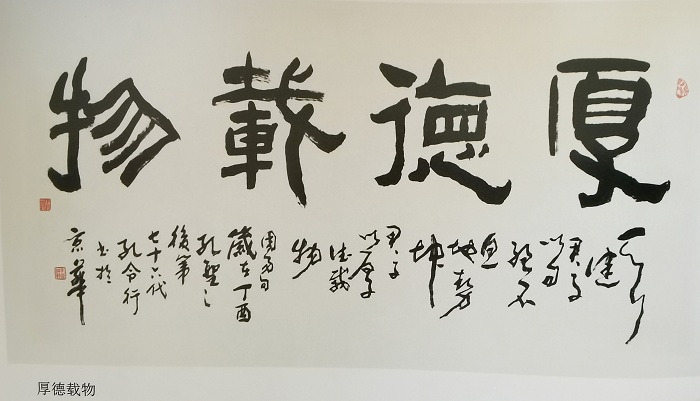 厚德載物
天行
健
君子
以自
强不
息
地势
坤
君子
以厚
德載
物
周易句
歲在丁酉
孔聖之
後第
七十六代
孔令行
书於
京華
厚德载物